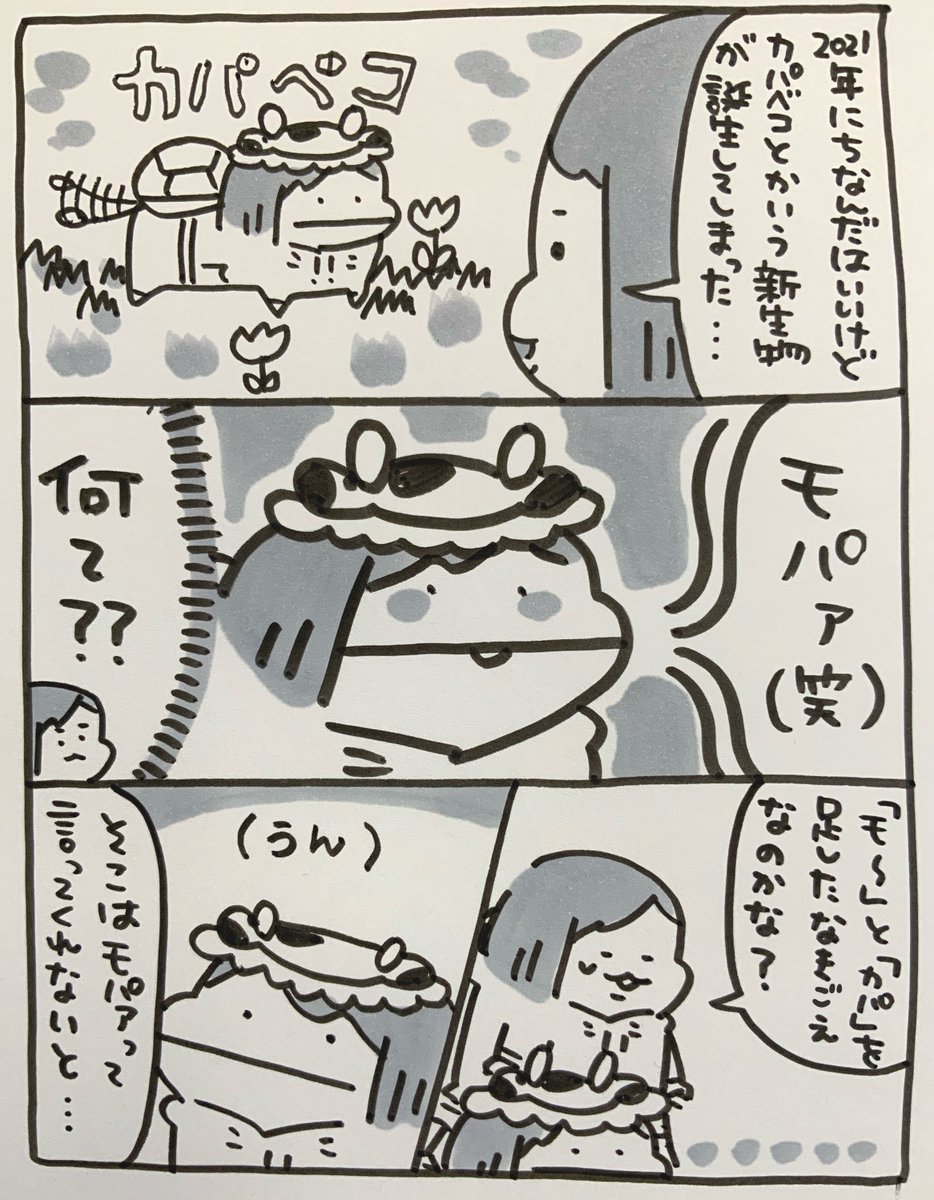 2021
年にちなんだはいいけど
カパベコとかいう新生物
が誕生してしまった…
カパベコ
モパァ
(笑)
何て??
「モ〜」と「カパ」を
足したなきごえ
なのかな?
(うん)
そこはモパァって
言ってくれないと…